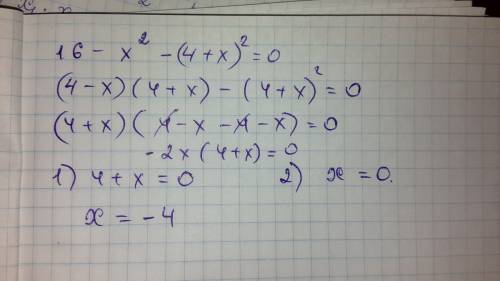 16 - x² - (4+x)² = 0
(4-x)(4+x) - (4+x)² = 0
(4+x)(4-x-4-x) = 0
-2x(4+x) = 0
1) 4+x = 0 2) x = 0.
x = -4